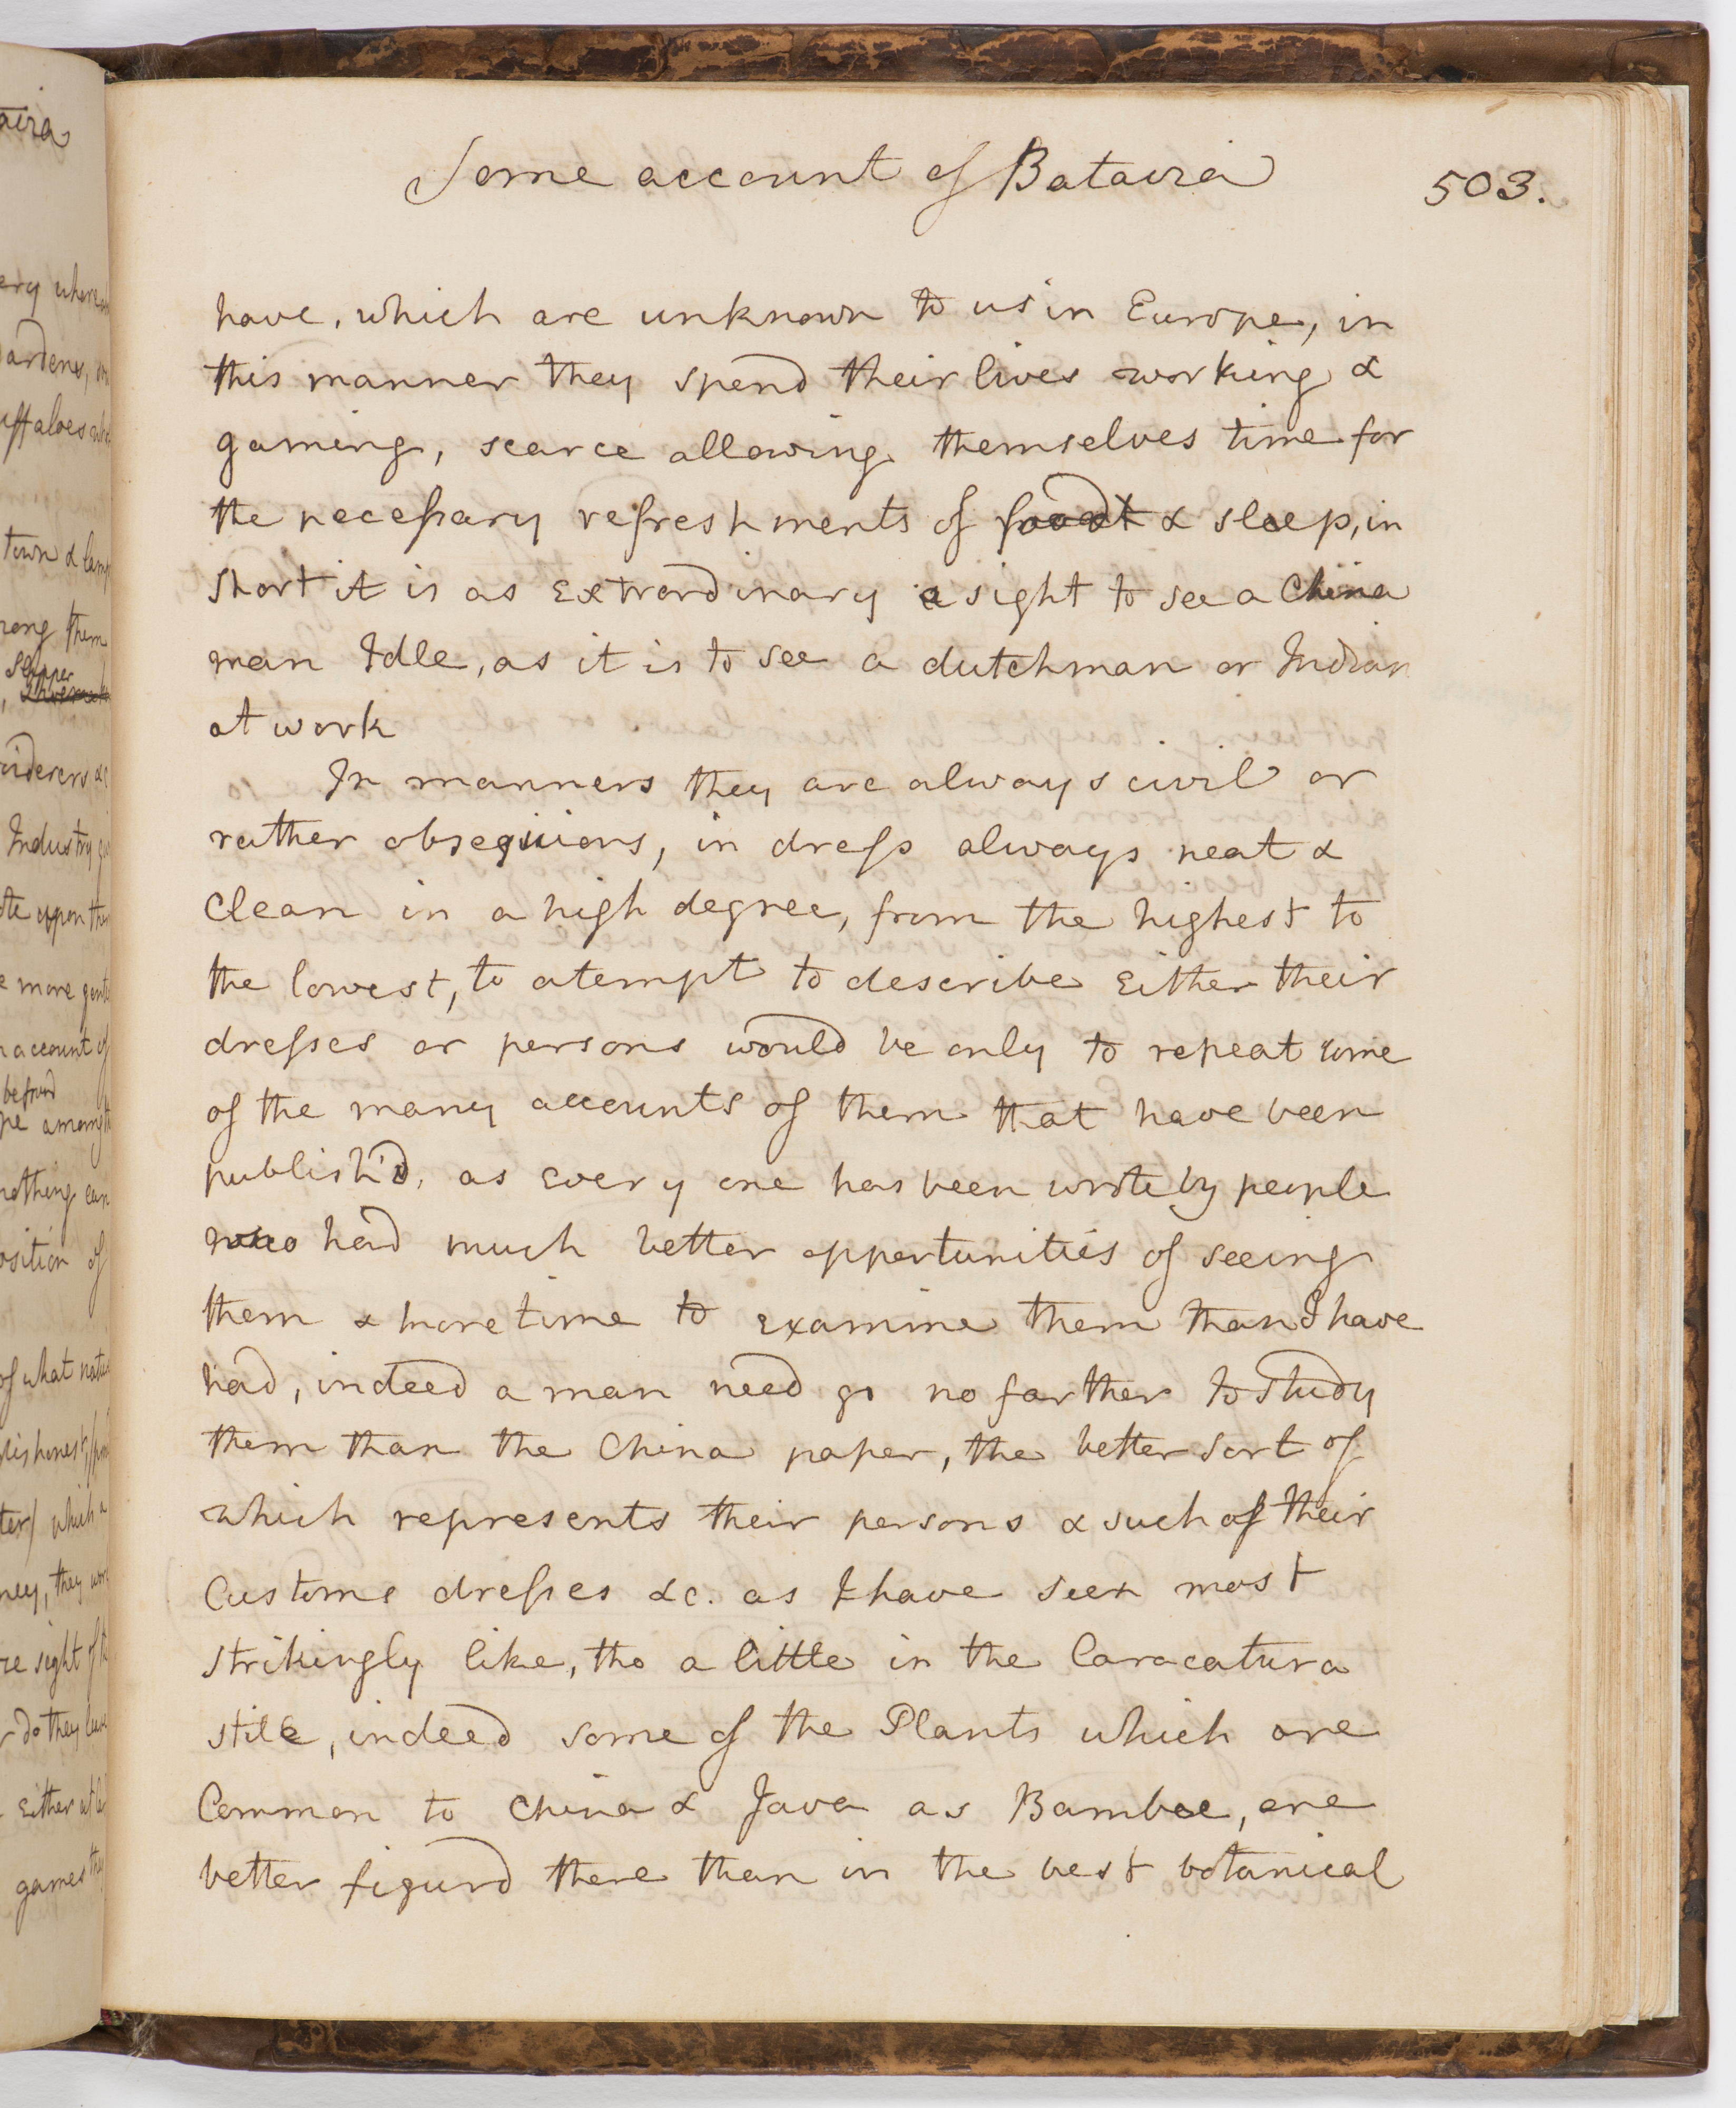 Some account of Batavia
503.
have, which are unknown to us in Europe, in
this manner they spend their lives working &
gaming, scarce allowing themselves time for
the necessary refreshments of food & sleep, in
short it is as extrordinary a sight to see a China
man Idle, as it is to see a dutchman or Indian
at work
In manners they are always civil or
rather obsequious, in dress always neat &
clean in a high degree, from the highest to
the lowest, to atempt to describe either their
dresses or persons would be only to repeat some
of the many accounts of them that have been
publish'd, as every one has been wrote by people
who had much better oppertunities of seeing
them & more time to examine them than I have
had, indeed a man need go no farther to study
them than the China paper, the better sort of
which represents their persons & such of their
Customs dresses &c. as I have seen most
strikingly like, tho a little in the Caracatura
stile, indeed some of the Plants which are
Common to China & Java as Bamboe, are
better figurd there than in the best botanical